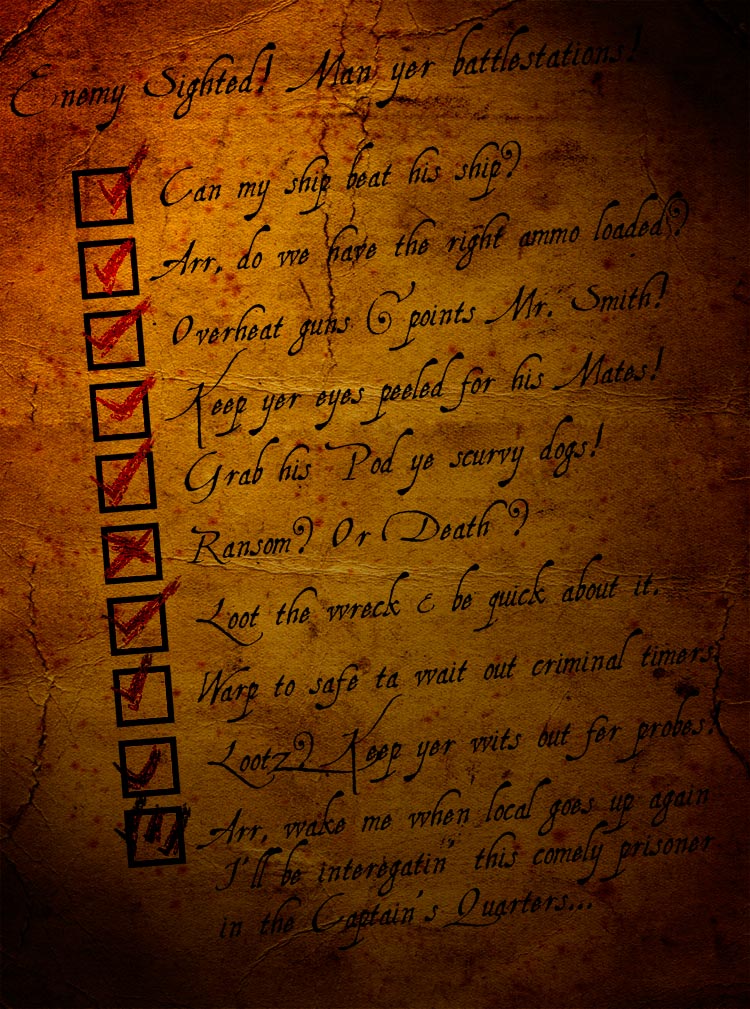 Enemy Sighted! Man yer battlestations!
Can my ship beat his ship?
Arr, do we have the right ammo loaded?
Overheat guns & points Mr. Smith!
Keep yer eyes peeled for his Mates!
Grab his Pod ye scurvy dogs!
Ransom? Or Death ?
Loot the wreck & be quick about it.
Warp to safe ta wait out criminal timers.
Lootz? Keep yer wits out fer probes!
Arr, wake me when local goes up again
I'll be interegatin' this comely prisoner
in the Captain's Quarters...